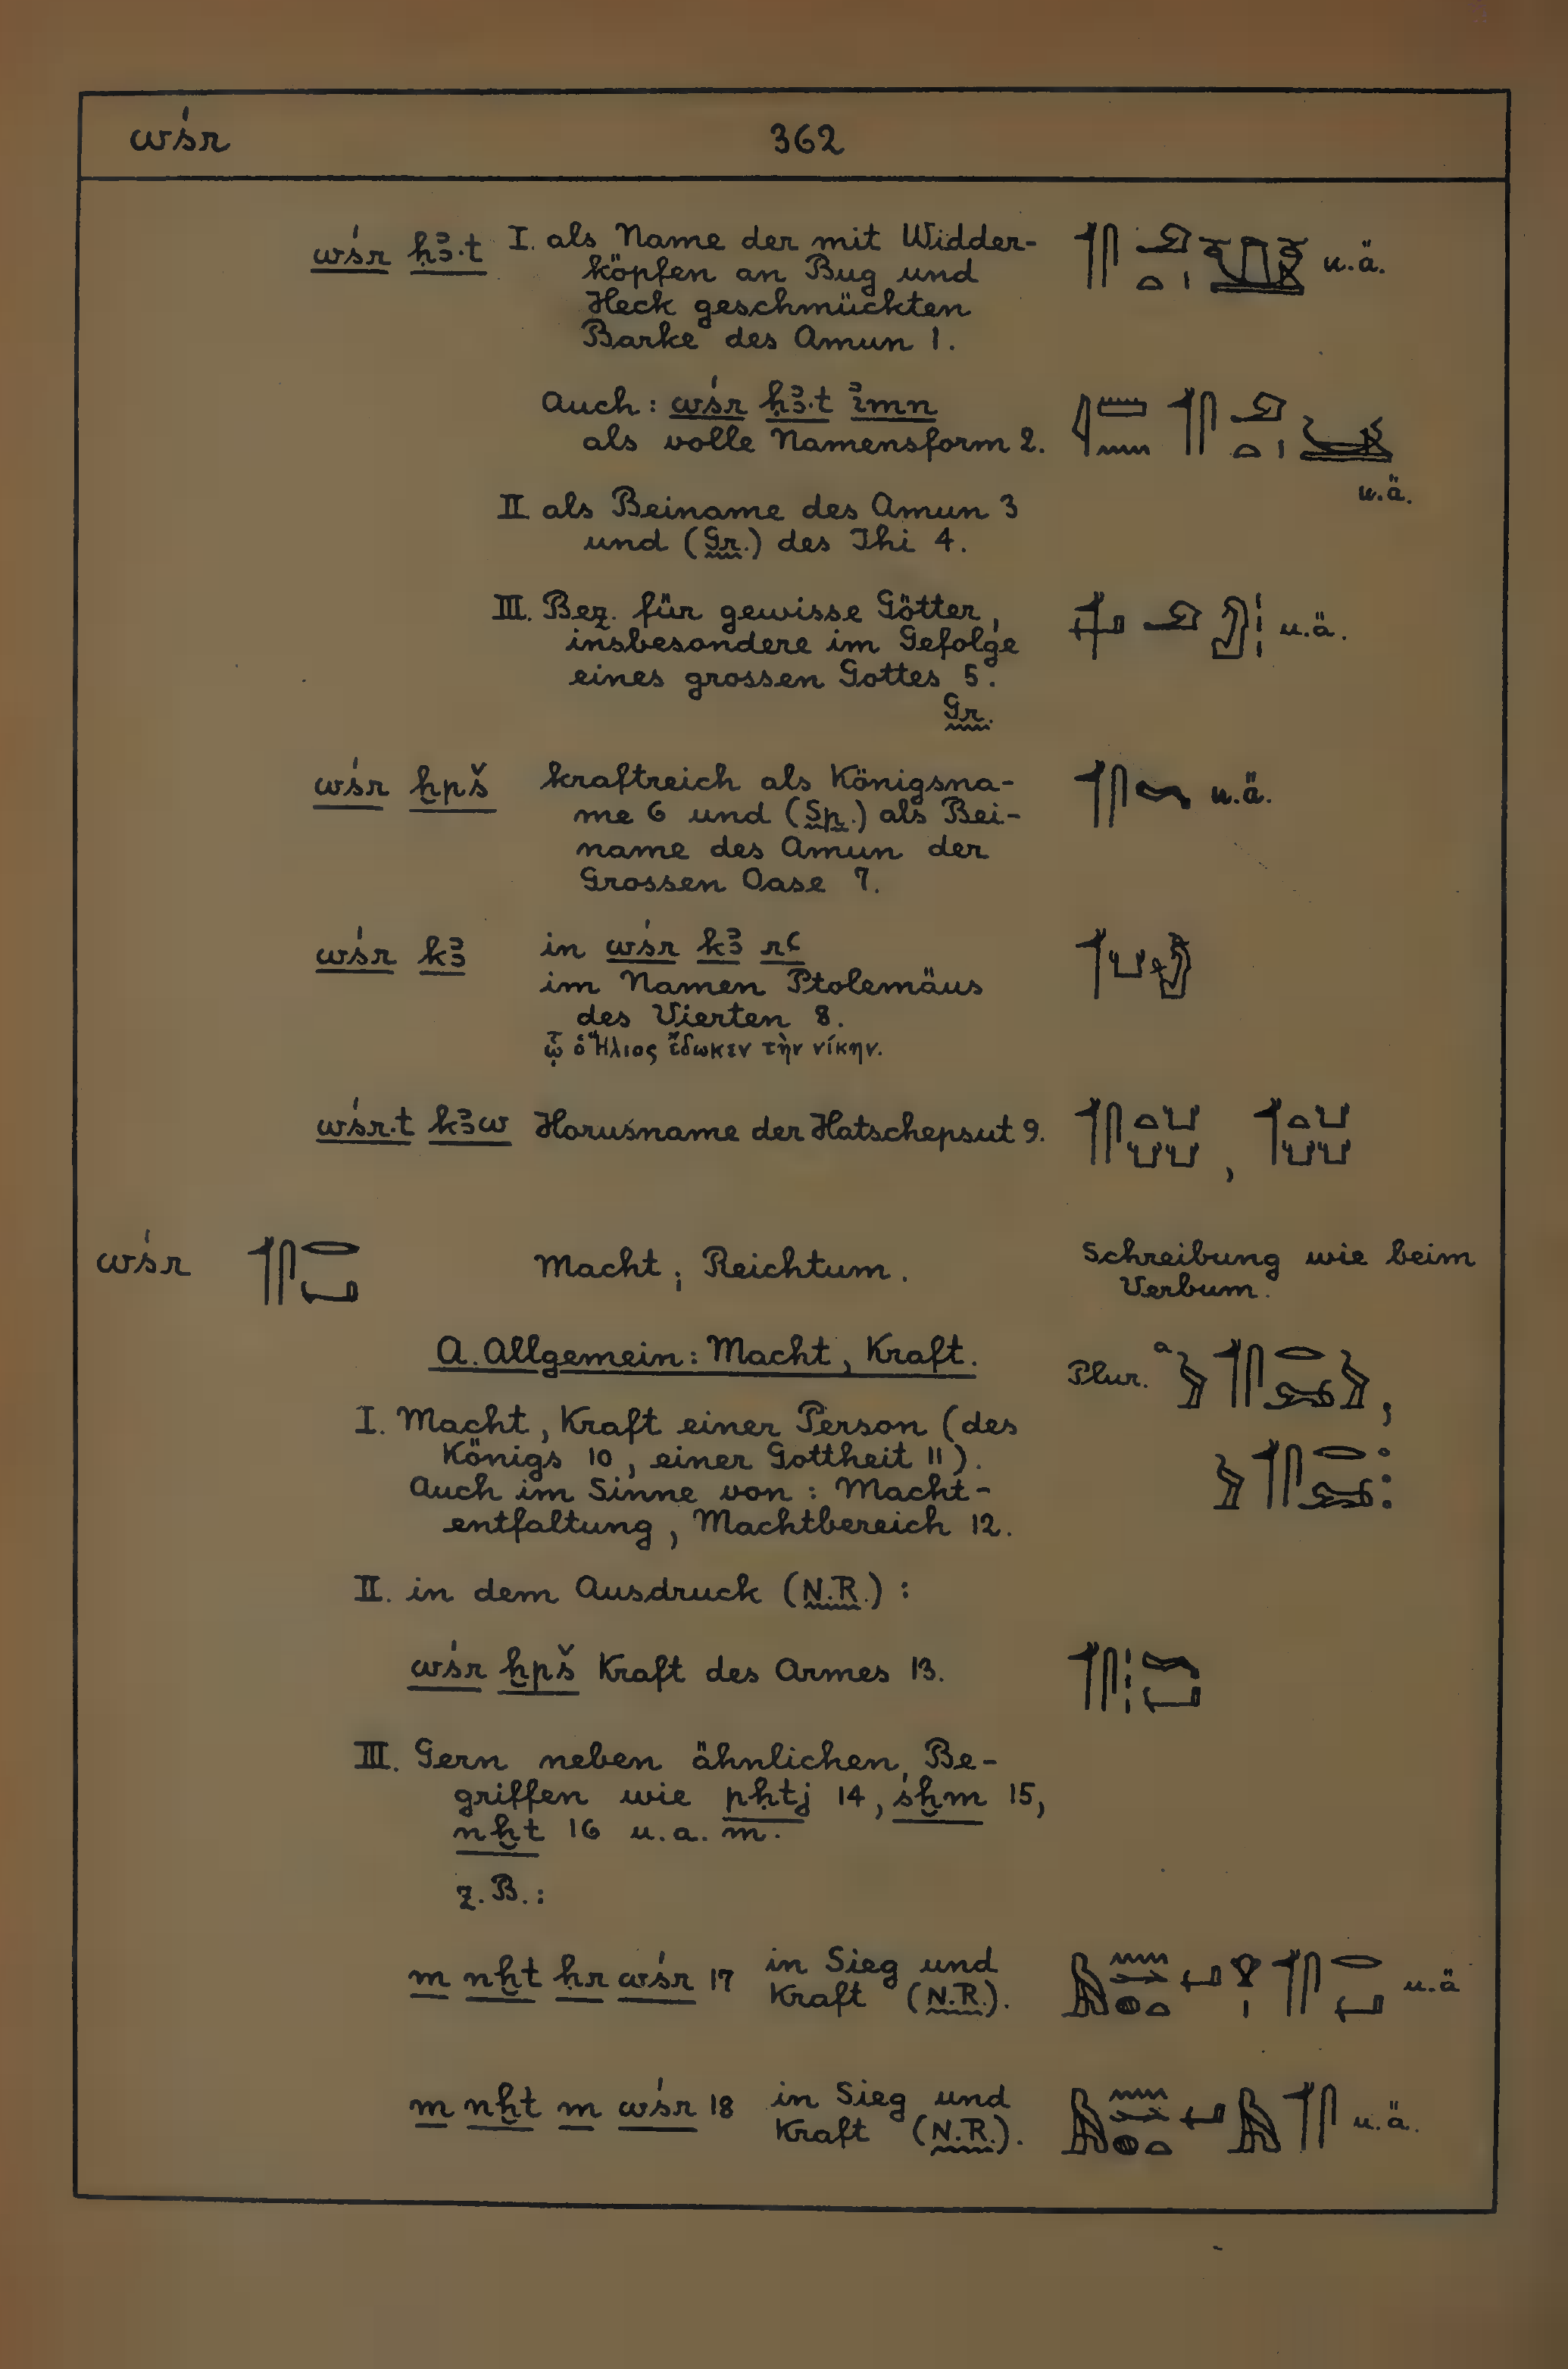 wśr 362
wśr ḥꜣ.t I. als Name der mit Widder-
köpfen an Bug und
Heck geschmückten
Barke des Amun 1.
u.ä.
Auch: wśr ḥꜣ.t ꞽmn
als volle Namensform 2.
u.ä.
II als Beiname des Amun 3
und (Gr.) des Ihi 4.
III. Bez. für gewisse Götter,
insbesondere im Gefolge
eines grossen Gottes 5.
Gr.
u.ä.
wśr ḫpš kraftreich als Königsna-
me 6 und (Sp.) als Bei-
name des Amun der
Grossen Oase 7.
u.ä.
wśr kꜣ in wśr kꜣ rꜥ
im Namen Ptolemäus
des Vierten 8.
ᾧ ὁ Ἥλιος ἔδωκεν τὴν νίκην.
wśr.t kꜣw Horusname der Hatschepsut 9.
wśr Macht; Reichtum. Schreibung wie beim
Verbum.
A. Allgemein: Macht, Kraft.
Plur. a
I. Macht, Kraft einer Person (des
Königs 10, einer Gottheit 11).
Auch im Sinne von: Macht-
entfaltung, Machtbereich 12.
II. in dem Ausdruck (N.R.):
wśr ḫpš Kraft des Armes 13.
III. Gern neben ähnlichen Be-
griffen wie pḥtj 14, śḫm 15,
nḫt 16 u.a.m.
z.B.:
m nḫt ḥr wśr 17 in Sieg und
Kraft (N.R.).
u.ä
m nḫt m wśr 18 in Sieg und
Kraft (N.R.).
u.ä.